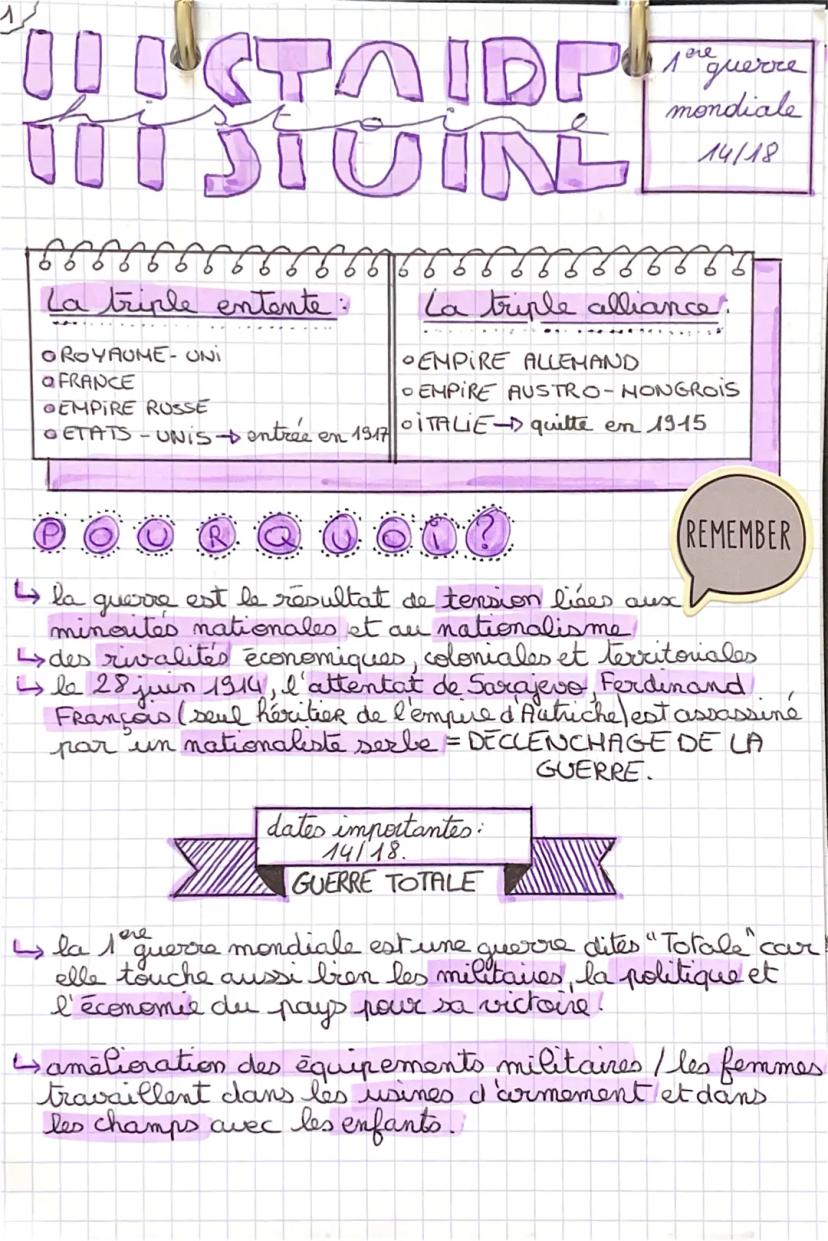 1
HISTOIRE
histoire
1ere guerre
mondiale
14/18
La triple entente :
ROYAUME-UNi
FRANCE
EMPiRE RUSSE
ETATS-UNiS → entrée en 1917
La triple alliance :
EMPiRE ALLEMAND
EMPiRE AUSTRO-HONGROiS
iTALiE → quitte en 1915
POURQUOi?
REMEMBER
↳ la guerre est le résultat de tension liées aux
minorités nationales et au nationalisme
↳ des rivalités économiques, coloniales et territoriales
↳ le 28 juin 1914, l'attentat de Sarajevo, Ferdinand
François (seul héritier de l'empire d'Autriche) est assassiné
par un nationaliste serbe = DÉCLENCHAGE DE LA
GUERRE.
dates importantes :
14/18.
GUERRE TOTALE
↳ la 1ere guerre mondiale est une guerre dites "Totale" car
elle touche aussi bien les militaires, la politique et
l'économie du pays pour sa victoire.
↳ amélioration des équipements militaires / les femmes
travaillent dans les usines d'armement et dans
les champs avec les enfants.